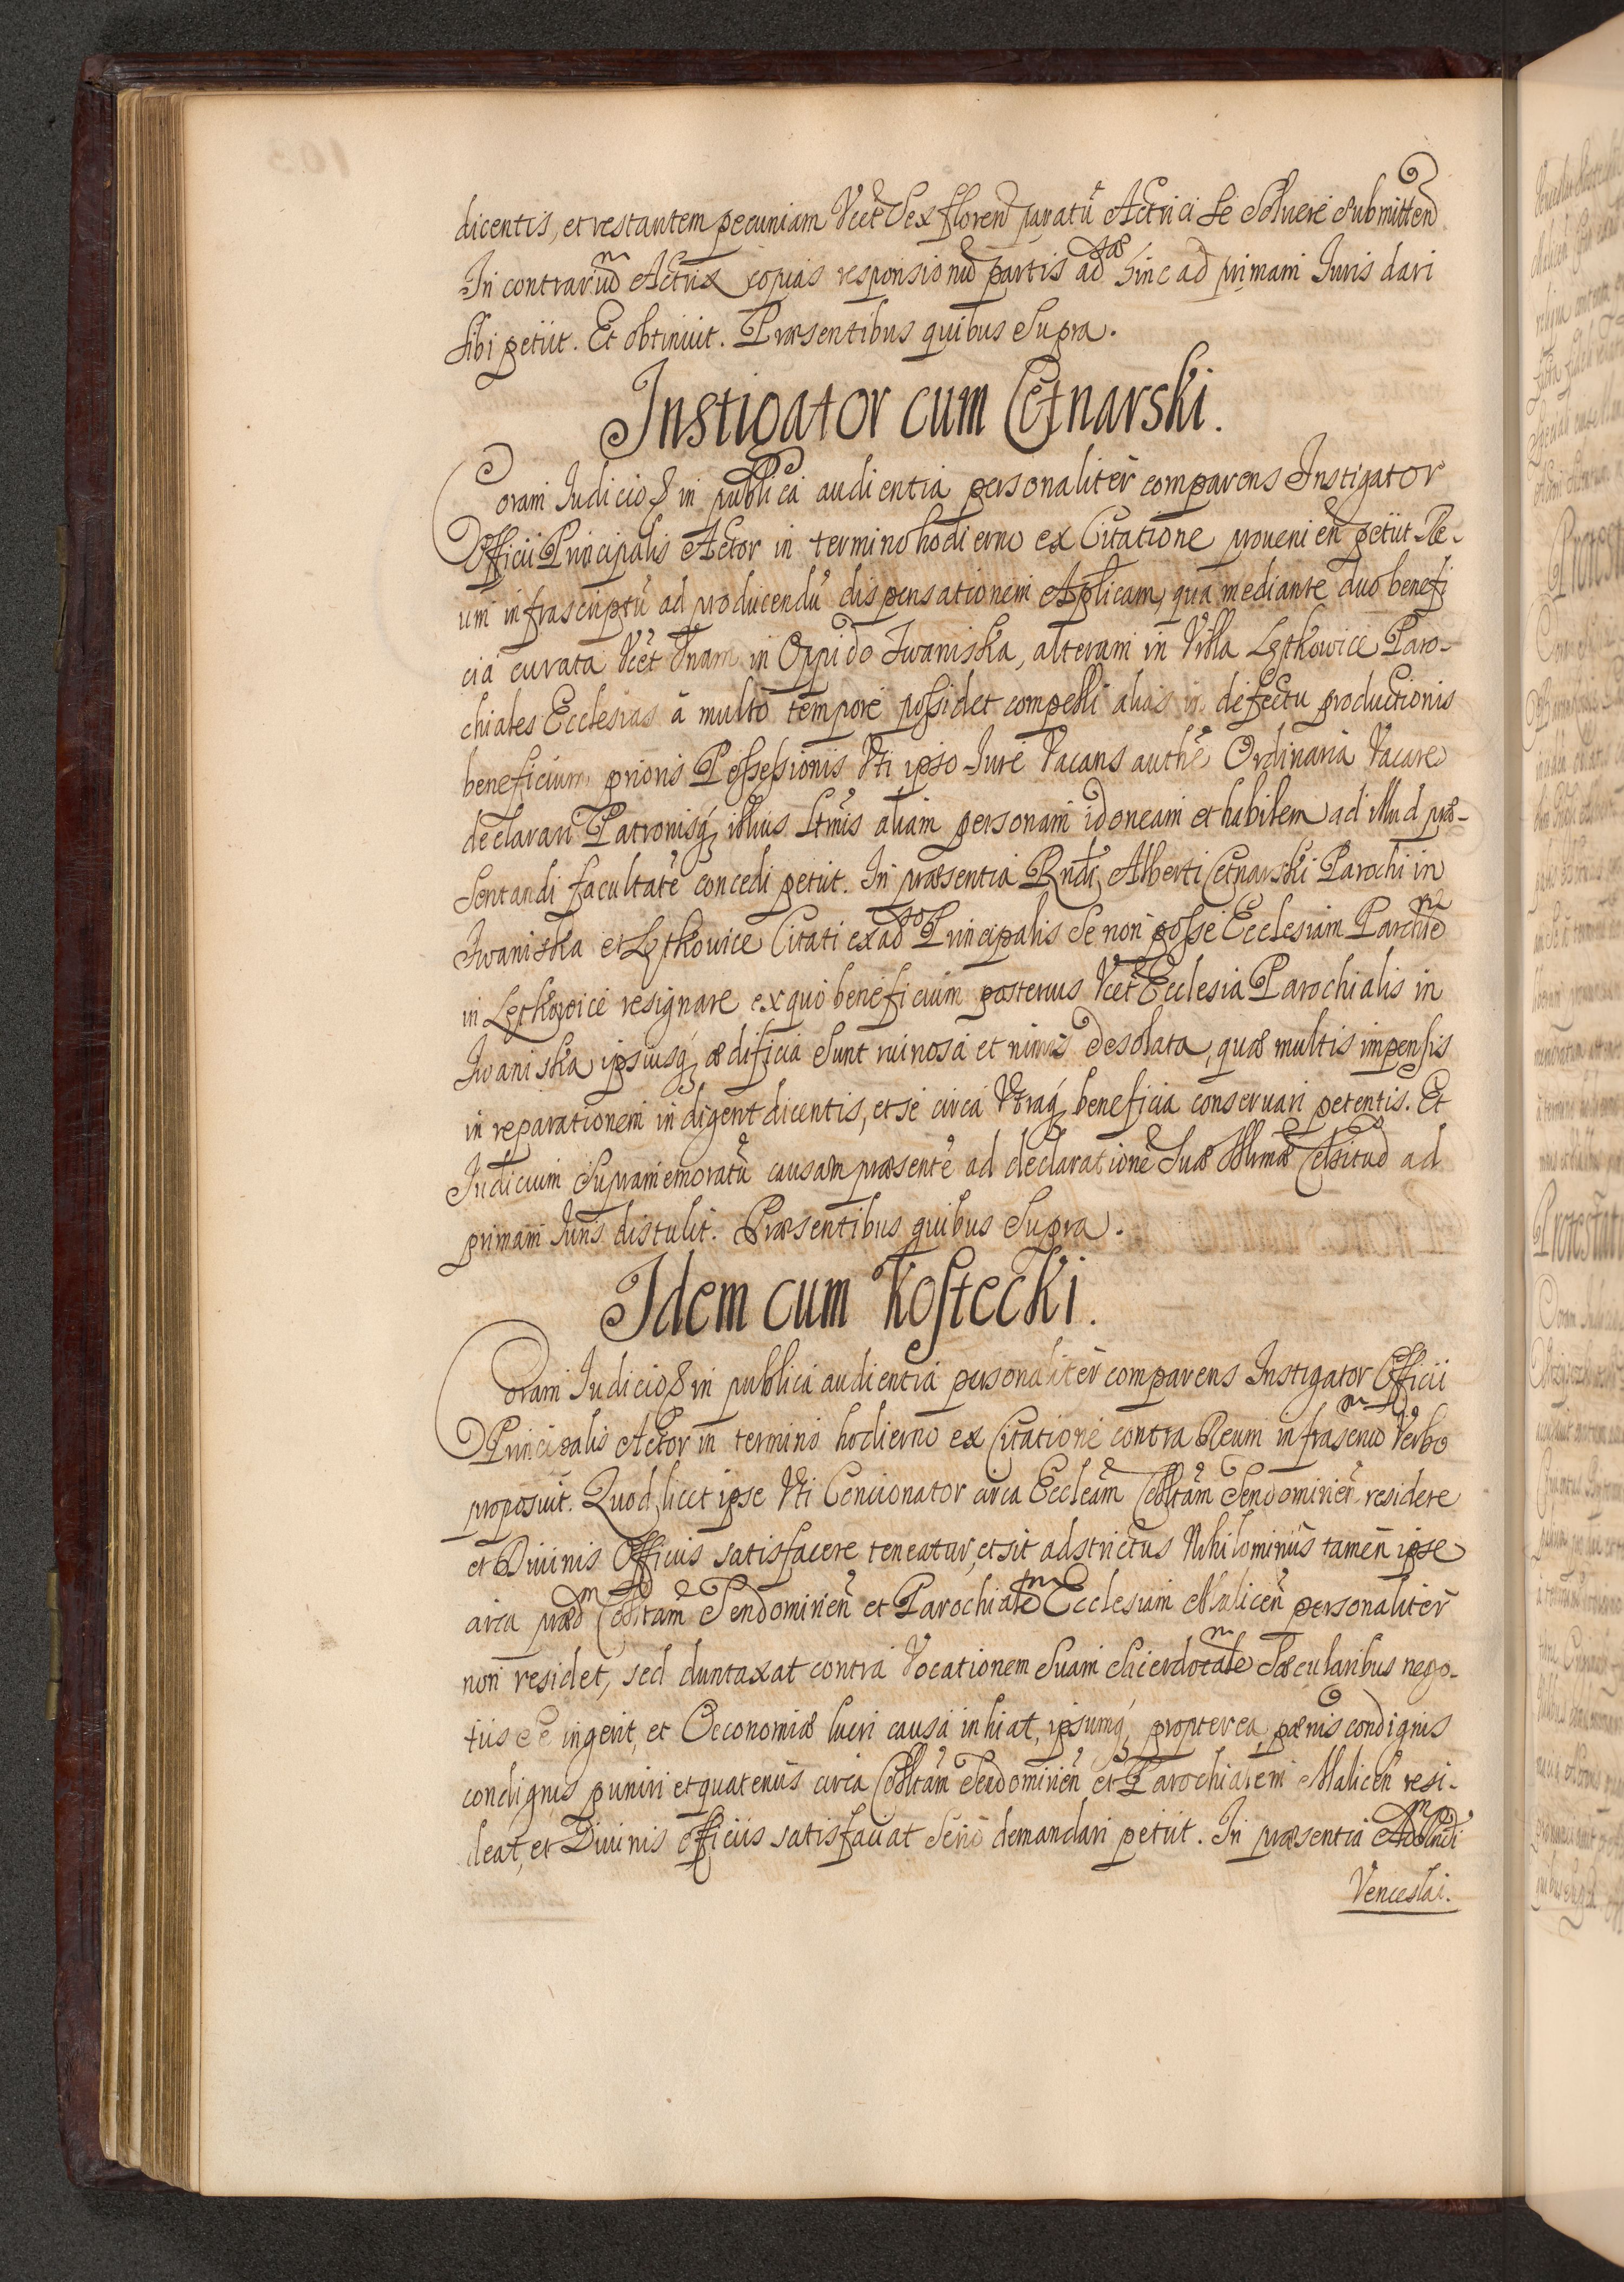 dicentis, et restantem pecuniam Vcet Sex floren paratū Actrici se Solvere Submitten
In contrariū Actrix copias responsionū partis ad hinc ad primam Iuris dari
Sibi petiit. Et obtinuit. Præsentibus quibus Supra.
Instigator cum Cetnarski.
Coram Iudicio & in publica audientia personaliter comparens Instigator
Officii Principalis Actor in termino hodierno ex Citatione provenien petiit Re-
um infrascriptū ad producendū dispensationem Aplicam, qua mediante duo benefi
cia curata Vcet Vnam in Oppido Iwaniska, alteram in Villa Lętkowice Paro-
chiales Ecclesias à multo tempore possidet compelli alias in defectu productionis
beneficium prioris Possessionis Vti ipso Iure Vacans authē Ordinaria Vacare
declarari Patronisq, illius Ltmis aliam personam idoneam et habilem ad illud præ-
sentandi facultatē concedi petiit. In præsentia Rndi Alberti Cetnarski Parochi in
Iwaniska et Lętkowice Citati ex ad Principalis Se non posse Ecclesiam Parchlē
in Lętkowice resignare ex quo beneficium posterius Vcet Ecclesia Parochialis in
Iwaniska ipsiusq, ædificia Sunt ruinosa et nimis desolata, quæ multis impensis
in reparationem indigent dicentis, et se circa Vtraq, beneficia conservari petentis. Et
Iudicium Supramemoratū causam præsentē ad declarationē Suæ Illmæ Celsitud ad
primam Iuris distulit. Præsentibus quibus Supra.
Idem cum Kostecki.
Coram Iudicio & in publica audientia personaliter comparens Instigator Officii
Principalis Actor in termino hodierno ex Citatione contra Reum infrascriū Verbo
proposuit. Quod licet ipse Vti Concionator circa Eccleām Colltām Sendomirien residere
et Divinis Officiis satisfacere teneatur, et sit adstrictus Nihilominus tamen ipse
circa præd Colltam Sendomirien et Parochialē Ecclesiam Malicen personaliter
non residet, sed duntaxat contra Vocationem Suam Sacerdotalē Sæcularibus nego-
tiis se ingerit, et Oeconomiæ lucri causa inhiat, ipsumq, propterea pænis condignis
condignis puniri et quatenus circa Colltām Sendomirien et Parochialem Malicen resi-
deat, et Divinis officiis satisfaciat Serio demandari petiit. In præsentia Ad Rndi
Venceslai.